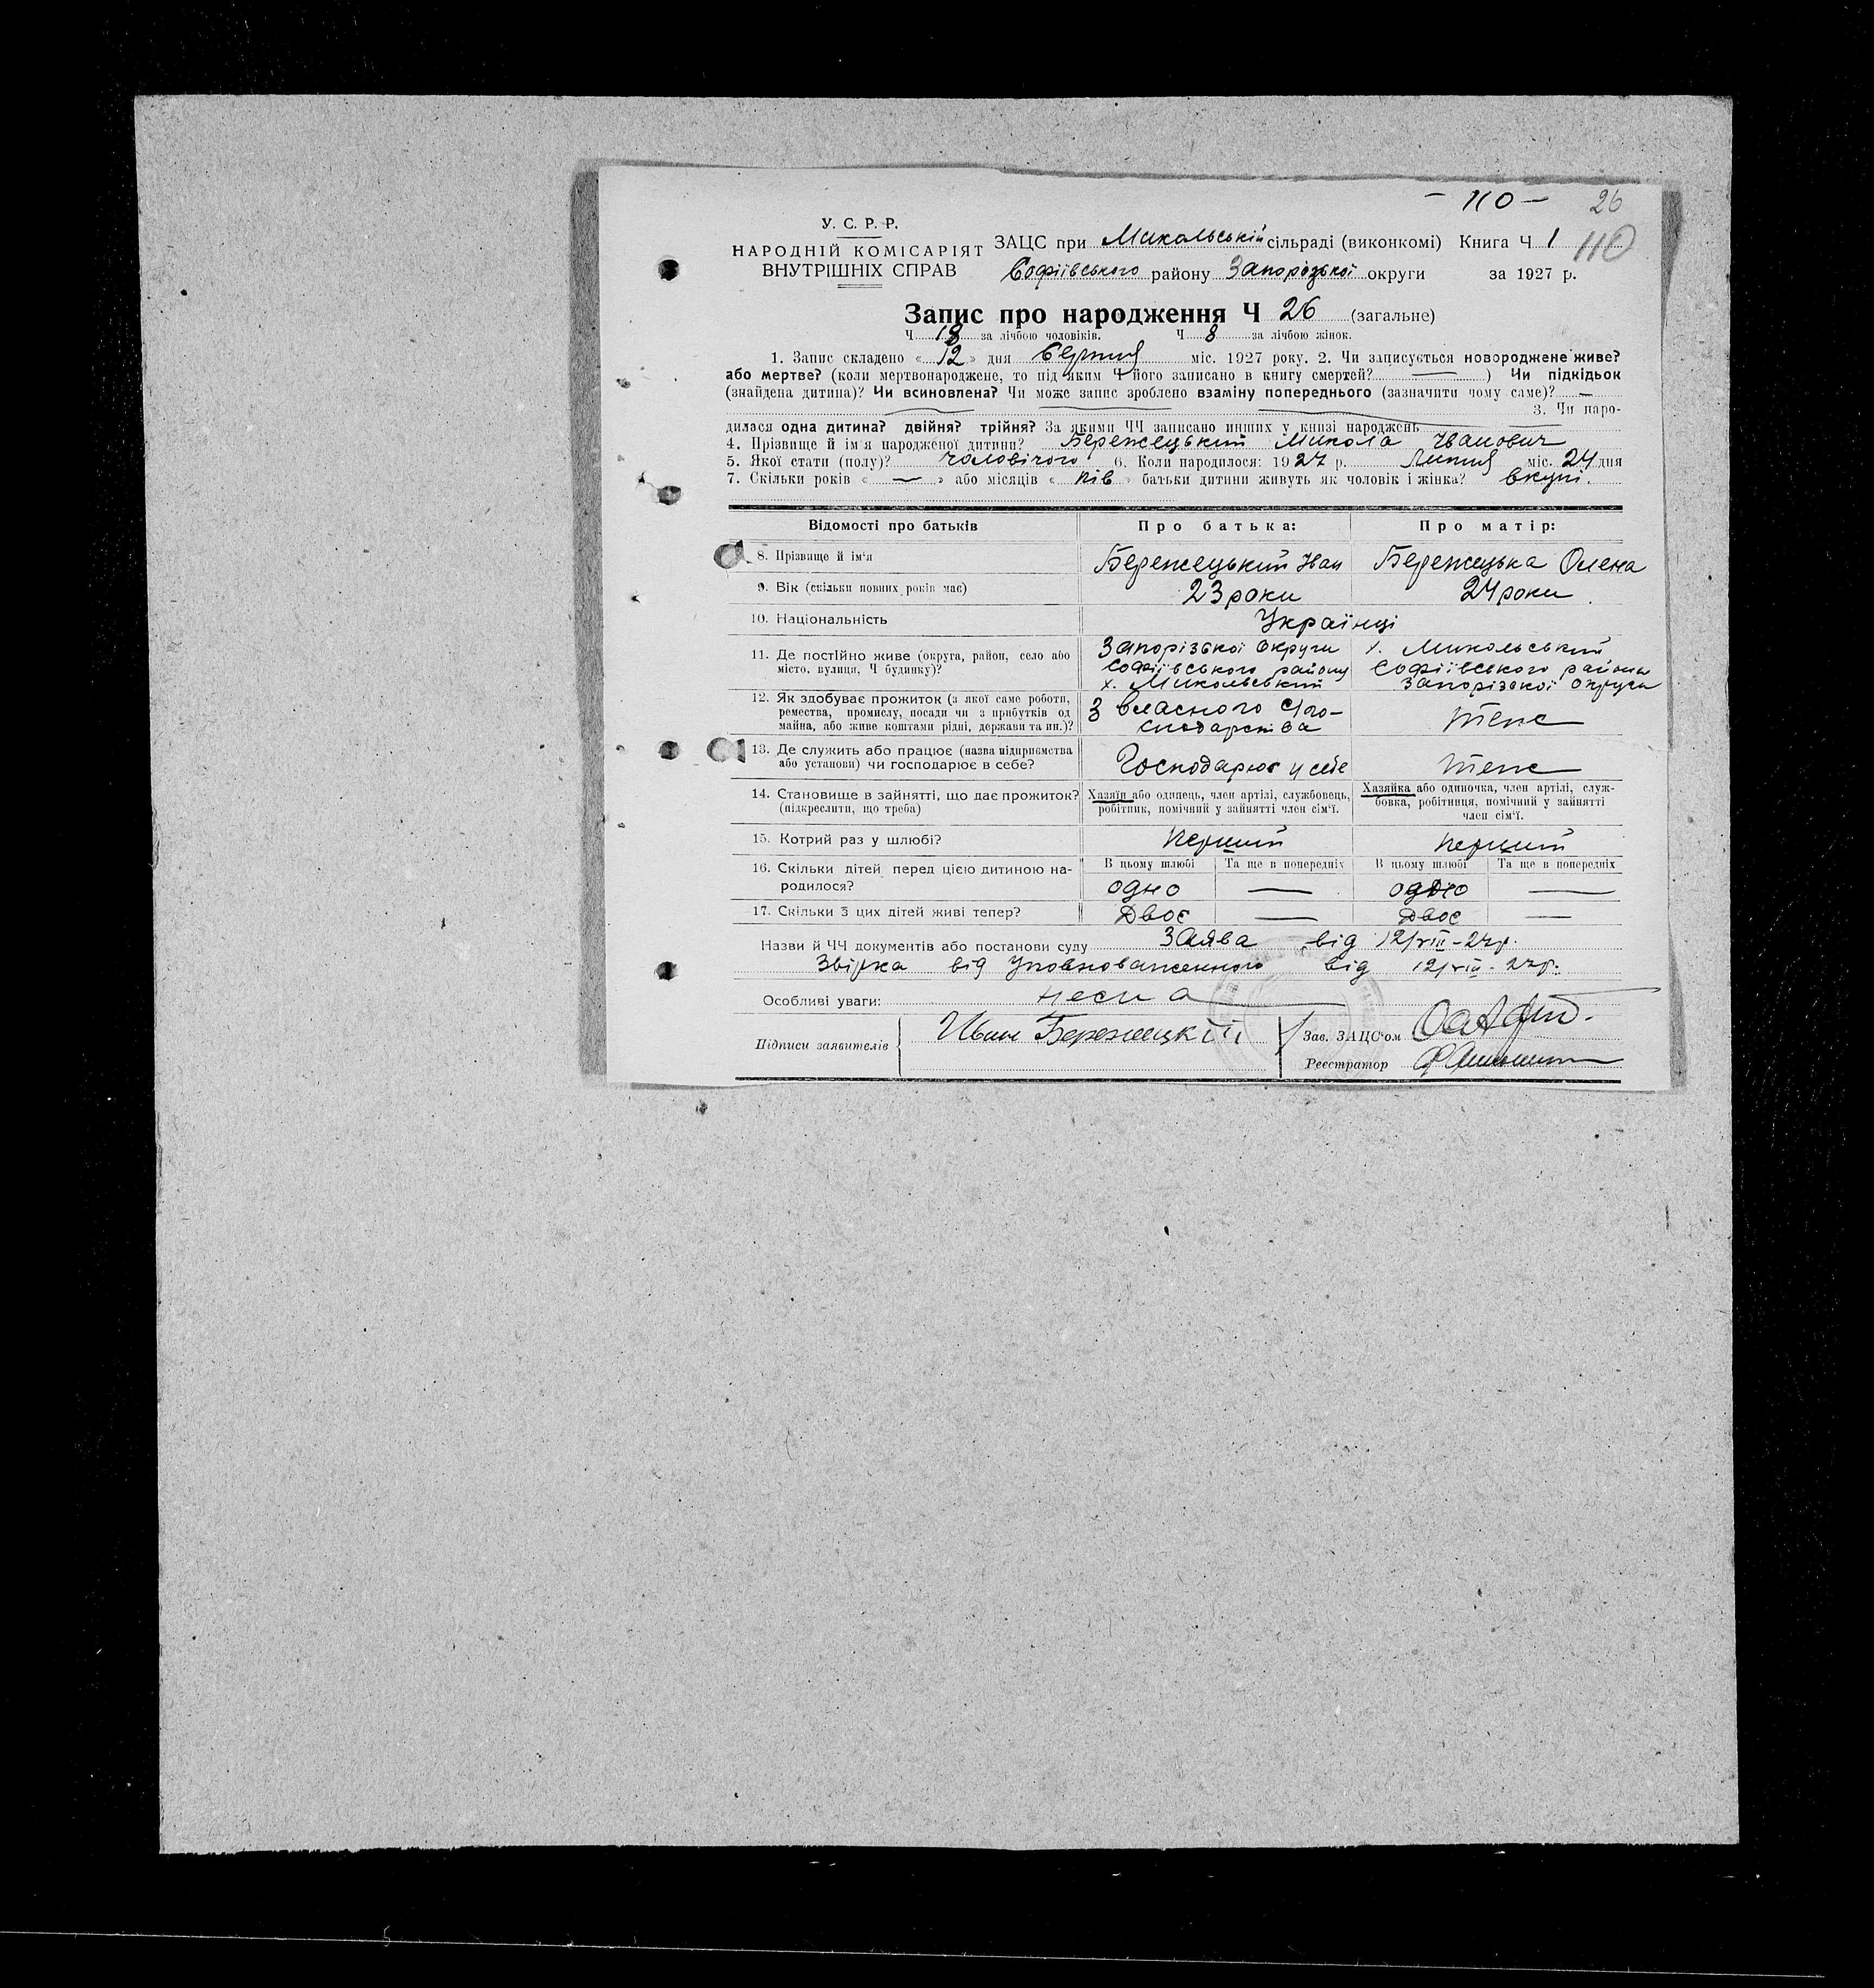 – 110 – 26
У. С. Р. Р.
НАРОДНІЙ КОМІСАРІЯТ
ВНУТРІШНІХ СПРАВ
ЗАЦС при Микольській сільраді (виконкомі) Книга Ч 1 110
Софіївського району Запорізької округи за 1927 р.
Запис про народження Ч 26 (загальне)
Ч 18 за лічбою чоловіків. Ч 8 за лічбою жінок.
1. Запис складено « 12 » дня Серпня міс. 1927 року. 2. Чи записується новороджене живе?
або мертве? (коли мертвонароджене, то під яким Ч його записано в книгу смертей? — ) Чи підкідьок
(знайдена дитина)? Чи всиновлена? Чи може запис зроблено взаміну попереднього (зазначити чому саме)? —
3. Чи наро-
дилася одна дитина? двійня? трійня? За якими ЧЧ записано инших у книзі народжень
4. Прізвище й ім'я народженої дитини? Бережецький Микола Іванович
5. Якої стати (полу)? чоловічого 6. Коли народилося: 1927 р. Липня міс. 24 дня
7. Скільки років « — » або місяців « пів » батьки дитини живуть як чоловік і жінка? вкупі.
Відомості про батьків Про батька: Про матір:
8. Прізвище й ім'я Бережецький Іван Бережецька Олена
9. Вік (скільки повних років має) 23 роки 24 роки
10. Національність Українці
11. Де постійно живе (округа, район, село або місто, вулиця, Ч будинку)?
Запорізької округи
Софіївського району
х. Микольський
х. Микольський
Софіївського району
Запорізької округи
12. Як здобуває прожиток (з якої саме роботи,
ремества, промислу, посади чи з прибутків од
майна, або живе коштами рідні, держави та ин.)?
З власного гос-
подарства
теж
13. Де служить або працює (назва підприємства
або установи) чи господарює в себе?
Господарює у себе
теж
14. Становище в зайнятті, що дає прожиток?
(підкреслити, що треба)
Хазяїн або одинець, член артілі, службовець,
робітник, помічний у зайнятті член сім'ї.
Хазяйка або одиночка, член артілі, служ-
бовка, робітниця, помічний у зайнятті
член сім'ї.
15. Котрий раз у шлюбі? перший перший
16. Скільки дітей перед цією дитиною на-
родилося?
В цьому шлюбі Та ще в попередніх В цьому шлюбі Та ще в попередніх
одно — одно —
17. Скільки з цих дітей живі тепер? Двоє — Двоє —
Назви й ЧЧ документів або постанови суду Заява від 12/VIII-27р.
від Уповноваженного від 12/VIII-27р.
Особливі уваги:
Підписи заявителів Иван Бережецкий
Зав. ЗАЦС'ом
Реєстратор